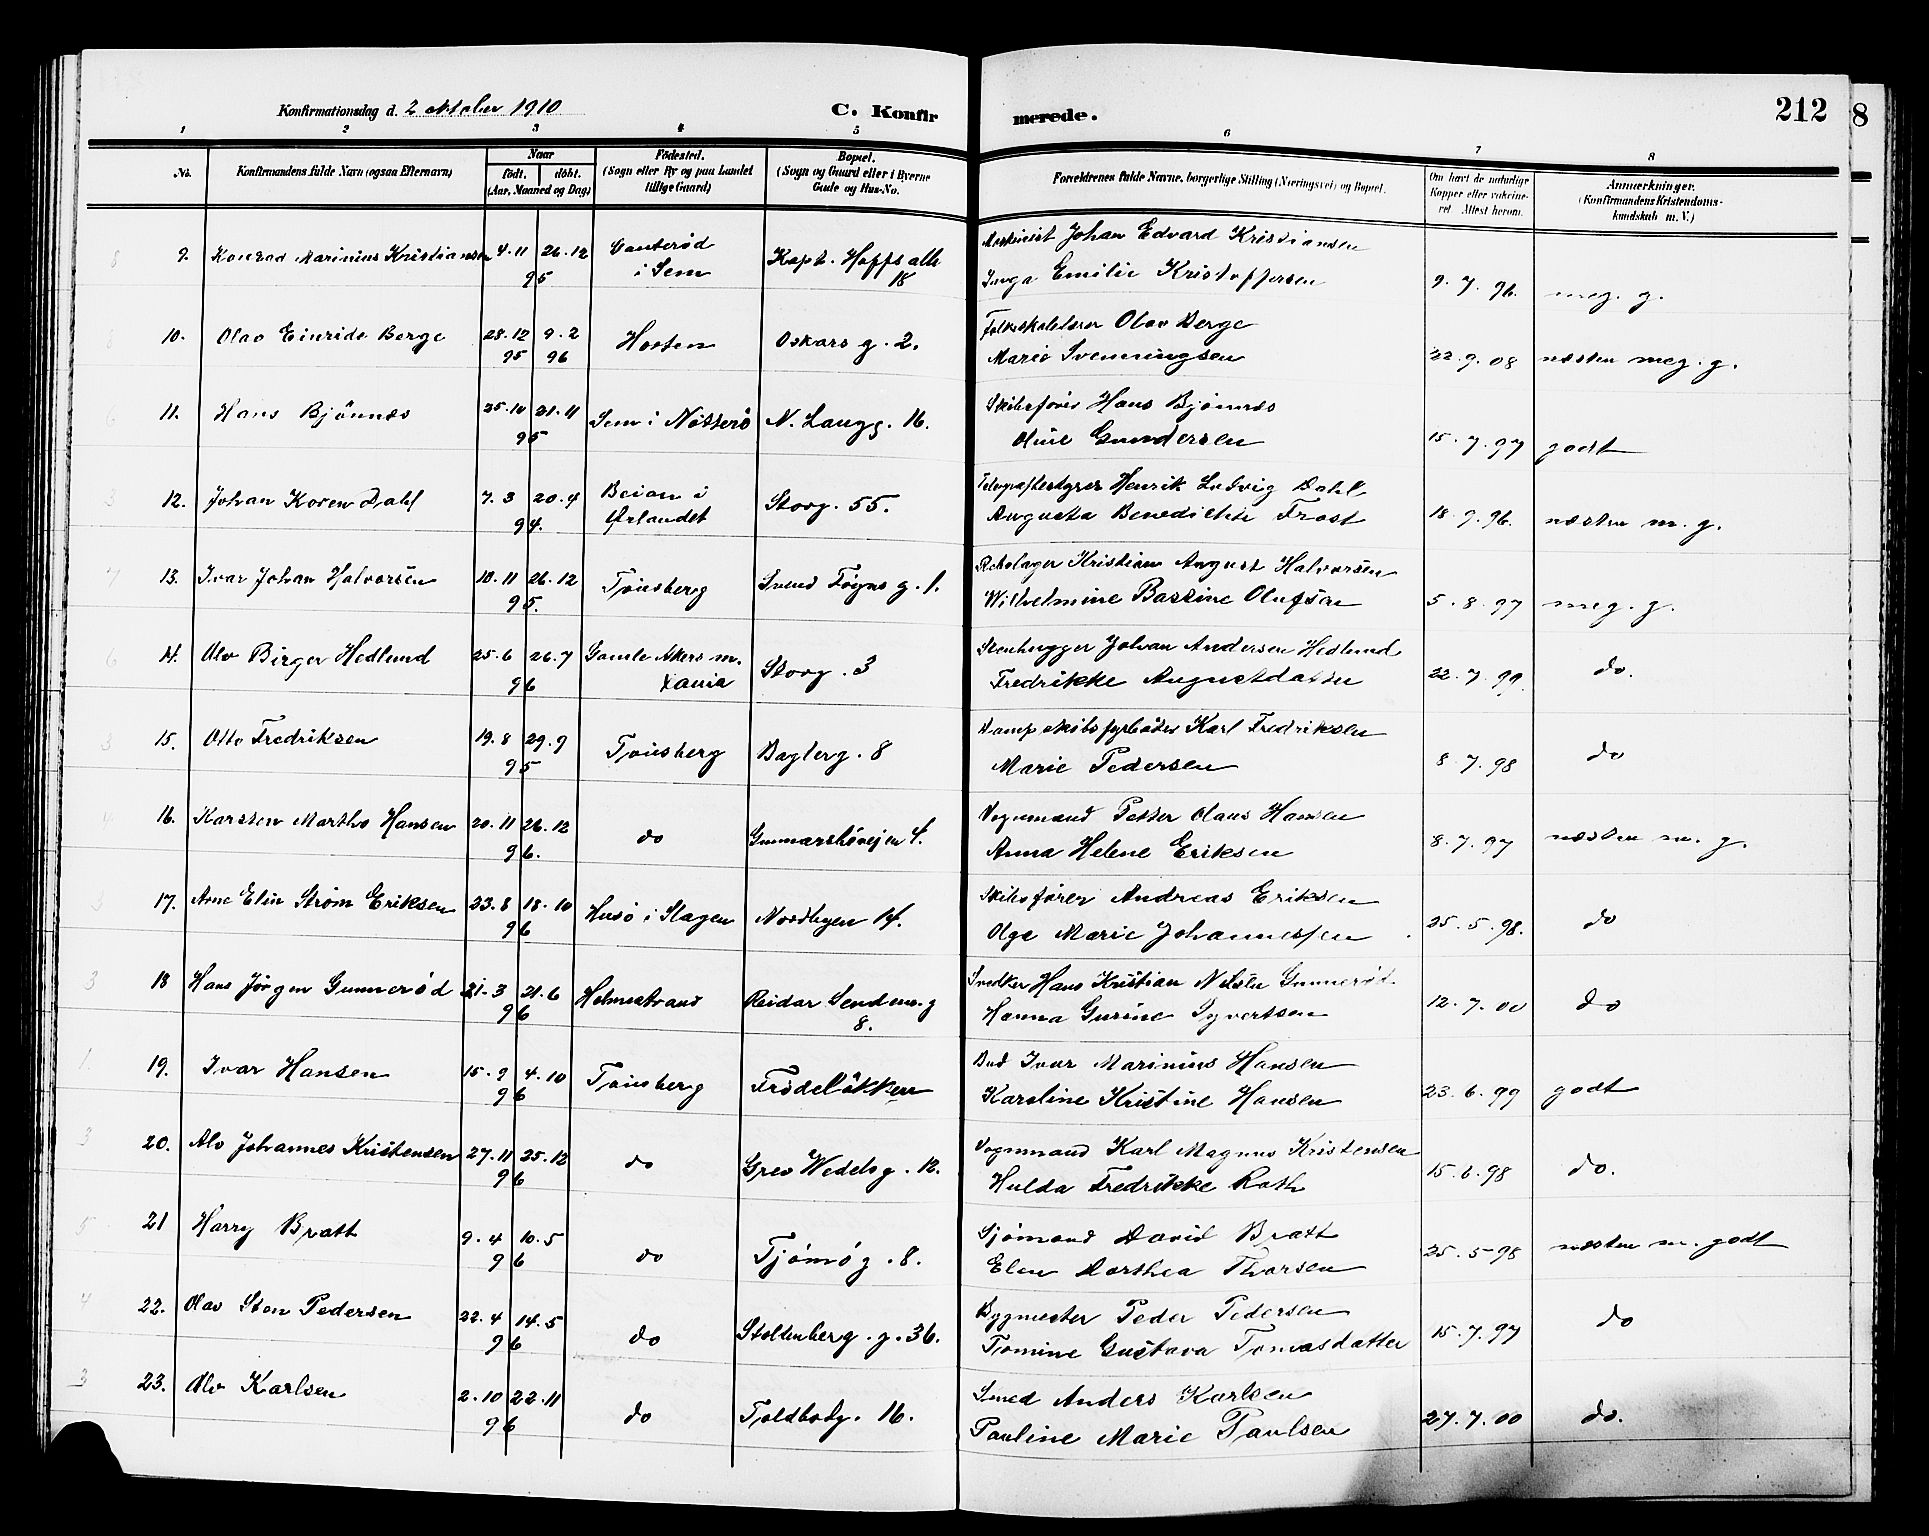 Konfirmationsdag d. 2 oktober 1910
C. Konfir
merede.
212
8
1 2 3 4 5 6 7 8
No.
Konfirmandens fulde Navn (ogsaa Efternavn)
Naar
födt. döbt.
(Aar, Maaned og Dag)
Födested.
(Sogn eller By og paa Landet
tillige Gaard)
Bopæl.
(Sogn og Gaard eller i Byerne
Gade og Hus-No.
Forældrenes fulde Navne, borgerlige Stilling (Næringsvei) og Bopæl.
Om havt de naturlige
Kopper eller vakcine-
ret. Attest herom.
Anmærkninger.
(Konfirmandens Kristendoms-
kundskab m. V.)
9. Konrad Marinius Kristiansen 4.11 26.12 Vanterød Kapt. Hoffs alle Maskinist Johan Edvard Kristiansen
95 i Sem 18 Inga Emilie Kristoffersen 9.7.96. meg. g.
10. Olav Einride Berge 28.12 9.2 Horten Oskars g. 2. Folkeskolelærer Olav Berge
95 96 Marie Svenningsen 22.9.08 næsten meg. g.
11. Hans Bjönnes 25.10 21.11 Sem i Nötterö N. Langg. 16. Skibsförer Hans Bjönnes
95 Oline Gundersen 15.7.97 godt
12. Johan Koren Dahl 7.3 20.4 Beian i Storg. 55. Telegrafbestyrer Henrik Ludvig Dahl
94. Ørlandet Augusta Benedikte Frost 18.9.96. næsten m. g.
13. Ivar Johan Halvorsen 10.11 26.12 Tönsberg Svend Föyns g. 1. Kristian August Halvorsen
95. Wilhelmine Bassine Olufsen 5.8.97 meg. g.
14. Olv Birger Hedlund 25.6 26.7 Gamle Akers m. Storg. 3 Stenhugger Johan Andersen Hedlund
96 Xania Fredrikke Augustdatter 22.7.99. do.
15. Otto Fredriksen 19.8 29.9 Tönsberg Baglerg. 8 Dampskibsfyrböder Karl Fredriksen
95 Marie Pedersen 8.7.98 do
16. Karsten Martho Hansen 20.11 26.12 do Gunnarsböveien 4. Vognmand Petter Olaus Hansen
96. Anna Helene Eriksen 8.7.97 næsten m. g.
17. Arne Elin Strøm Eriksen 23.8 18.10 Husö i Slagen Nordbyen 14. Skibsfører Andreas Eriksen
96 Olga Marie Johannessen 25.5.98. do
18 Hans Jörgen Gunneröd 21.3 21.6 Holmestrand Reidar Sendems g Snedker Hans Kristian Nilsen Gunneröd
96 8. Hanna Gurine Syvertsen 12.7.00 do
19. Ivar Hansen 15.9 4.10 Tönsberg Frödelökken Bud Ivar Marinius Hansen
96 Karoline Kristine Hansen 23.6.99 godt
20. Alv Johannes Kristensen 27.11 25.12 do Grev Wedels g. 12. Vognmand Karl Magnus Kristensen
96 Hulda Fredrikke Roth 15.6.98 do.
21 Harry Bratt 9.4 10.5 do Tjömö g. 8. Sjömand David Bratt
96 Elen Dorthea Thorsen 25.5.98 næsten m. godt
22. Olav Sten Pedersen 22.4 14.5 do Stoltenberg. g. 36. Bygmester Peder Pedersen
96 Tomine Gustava Tomasdatter 15.7.97 do
23. Olv Karlsen 2.10 22.11 do Toldbodg. 16. Smed Anders Karlsen
96 Pauline Marie Paulsen 27.7.00 do.